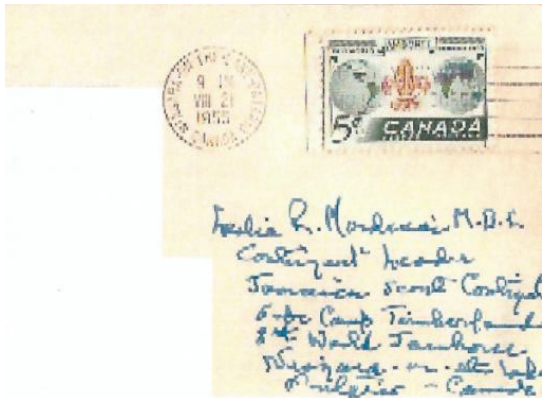 VIII 21
1955
CANADA
WORLD JAMBOREE
5¢ CANADA
Leslie R. Mordecai M.B.E.
Contingent Leader
Jamaican Scout Conting
Camp Timberland
8th World Jamboree
Niagara-on-the-Lake
Ontario - Canada